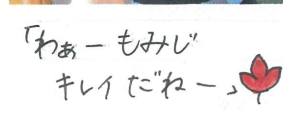 「わぁー もみじ
キレイ だねー」